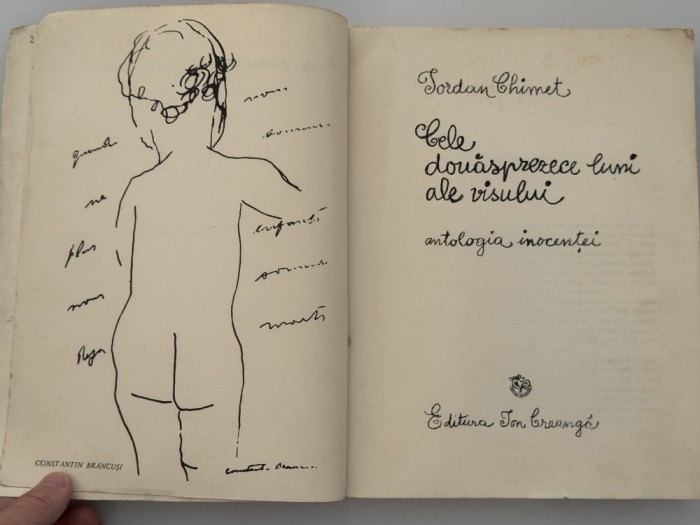 2
quand
nous
sommes
ne
plus
enfants
nous
sommes
morts
CONSTANTIN BRÂNCUȘI
Iordan Chimet
Cele
douăsprezece luni
ale visului
antologia inocenței
Editura Ion Creangă